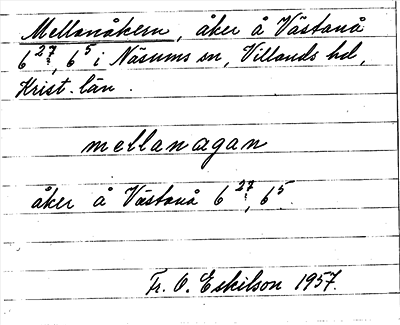 Mellanåkern, åker å Västanå
6 27, 6 5 i Näsums sn, Villands hd,
Krist. län.
mellanagan
åker å Västanå 6 27, 6 5.
Fr. O. Eskilson 1957.